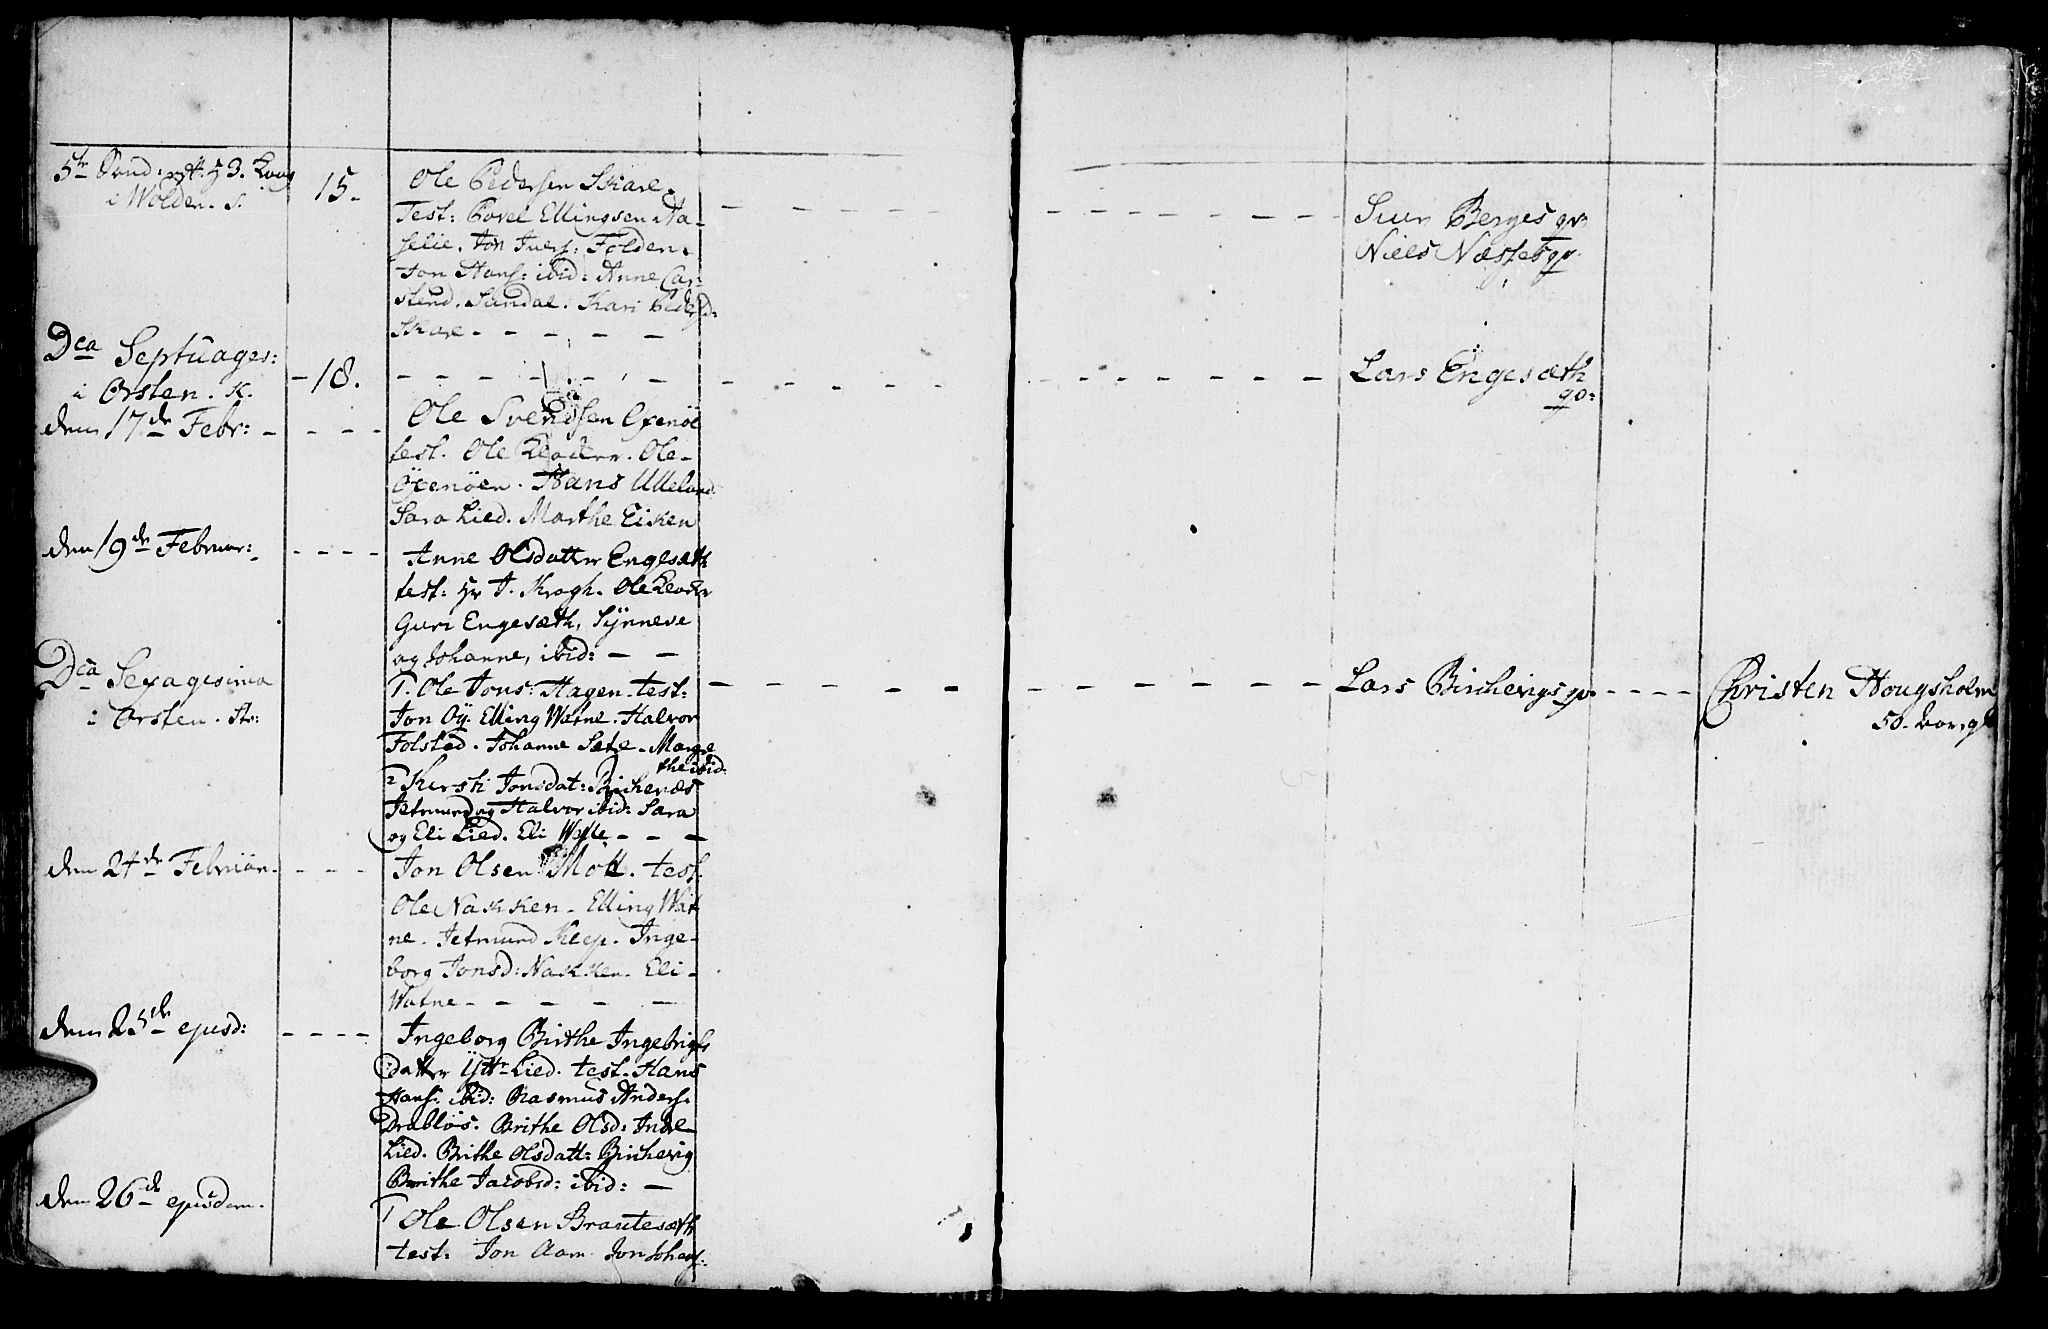 5te Sønd: eft: H 3. Kong
i Wolden. S.
15.
Ole Pedersen Skare.
Test: Povel Ellingsen Aa-
selie. Jon Ivers: Folden.
Jon Hans: ibid: Anne Car-
stend. Sundal. Kari Pedersd:
Skare - - - - -
Siur Berges qv:
Niels Næssets qv.
Dca Septuages:
i Ørsten. K.
- 18.
Lars Engesæth
qv:
den 17de Febr: -
Ole Svendsen Oxenöe
test. Ole Klocker. Ole
Öxenöen. Hans Ulleland
Sara Lied. Marthe Eiken
den 19de Februar:
Anne Olsdatter Engesæth
test: Hr J. Krogh. Ole Klocker
Guri Engesæth, Synneve
og Johanne, ibid: - -
Dca Sexagesima
i Ørsten.
1. Ole Jons: Hagen. test:
Jon Oÿ. Elling Watne. Halvor
Folsted. Johanne Sæte. Margre
the ibid:
2 Kirsti Jonsdat: Birchenæs
Jetmund og Halvor ibid: Sara
og Eli Lied. Eli Watne - - -
Lars Birchevigs qv.
Christen Hougsholm
50.
den 24de Februar.
Jon Olsen Moll. test.
Ole Nakken. Elling Wat
ne. Jetmund Klep. Inge-
borg Jonsd: Nakken. Eli
Watne - - - - -
den 25de ejusd:
Ingeborg Birthe Ingebrigts
datter Ytt: Lied. test. Hans
Hans: ibid: Rasmus Anders:
Drabløs. Brithe Olsd: Indre
Lied. Brithe Olsdatt: Birchevig
Brithe Jacobsd: ibid: -
den 26de ejusdem.
1 Ole Olsen Brautesæth
test: Jon Aam. Jon Johans: